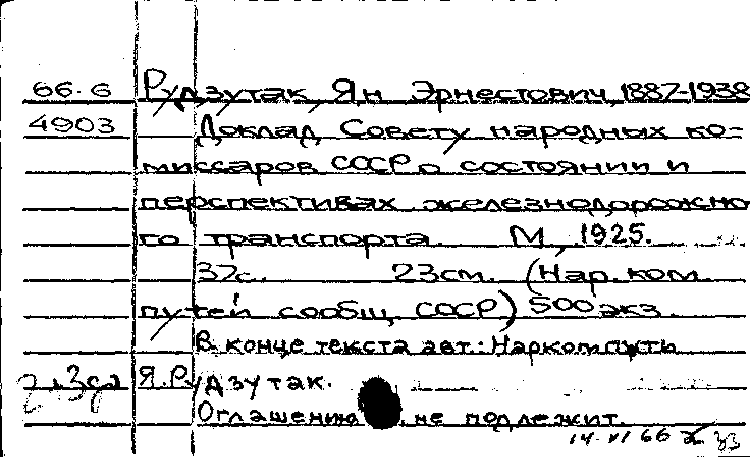 66-6 Рудзутак, Ян Эрнестович, 1887-1938
4903 Доклад Совету народных ко-
миссаров СССР о состоянии и
перспективах железнодорожно
го транспорта. М, 1925.
32с. 23см. (Нар. ком
путей сообщ. СССР) 500 экз.
В конце текста авт.: Наркомпуть
Я. Рудзутак.
Оглашению не подлежит.
14.VI 66